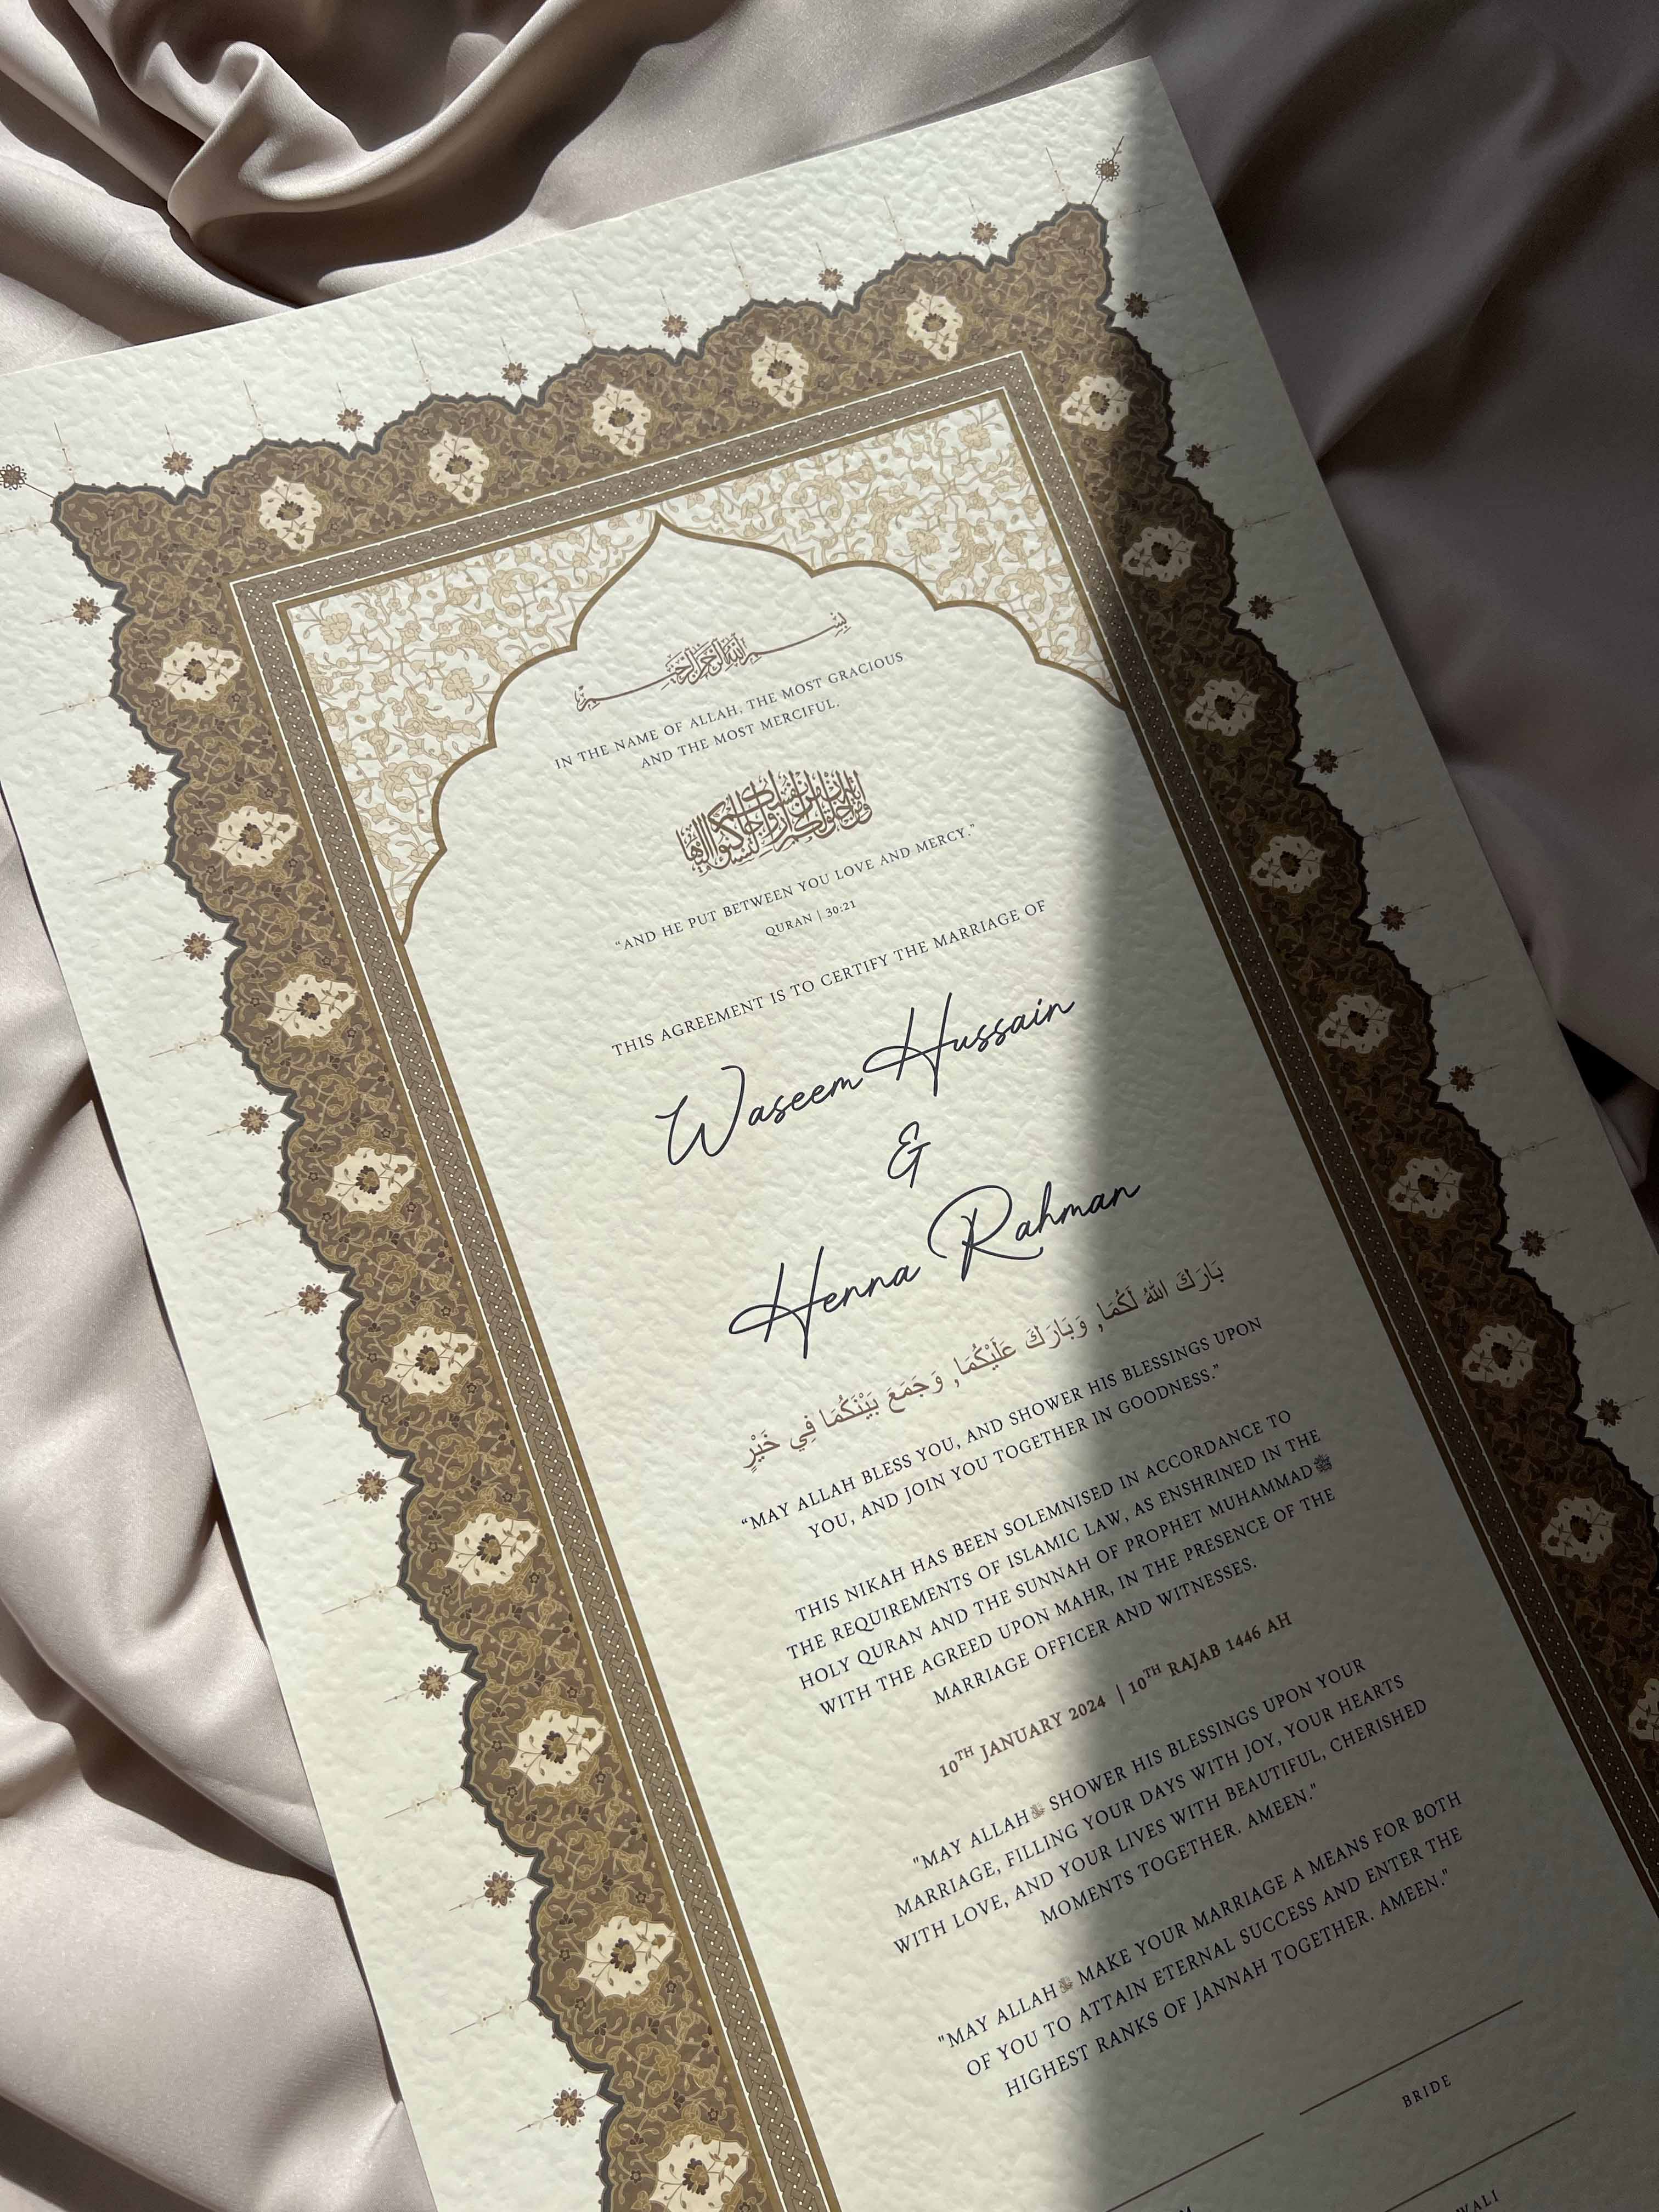 بسم الله الرحمن الرحيم
IN THE NAME OF ALLAH, THE MOST GRACIOUS
AND THE MOST MERCIFUL.
ومن آياته أن خلق لكم من أنفسكم أزواجا لتسكنوا إليها
“AND HE PUT BETWEEN YOU LOVE AND MERCY.”
QURAN | 30:21
THIS AGREEMENT IS TO CERTIFY THE MARRIAGE OF
Waseem Hussain
&
Henna Rahman
بَارَكَ اللهُ لَكُمَا, وَبَارَكَ عَلَيْكُمَا, وَجَمَعَ بَيْنَكُمَا فِي خَيْرٍ
“MAY ALLAH BLESS YOU, AND SHOWER HIS BLESSINGS UPON
YOU, AND JOIN YOU TOGETHER IN GOODNESS.”
THIS NIKAH HAS BEEN SOLEMNISED IN ACCORDANCE TO
THE REQUIREMENTS OF ISLAMIC LAW, AS ENSHRINED IN THE
HOLY QURAN AND THE SUNNAH OF PROPHET MUHAMMADﷺ
WITH THE AGREED UPON MAHR, IN THE PRESENCE OF THE
MARRIAGE OFFICER AND WITNESSES.
10TH JANUARY 2024 | 10TH RAJAB 1446 AH
"MAY ALLAH SHOWER HIS BLESSINGS UPON YOUR
MARRIAGE, FILLING YOUR DAYS WITH JOY, YOUR HEARTS
WITH LOVE, AND YOUR LIVES WITH BEAUTIFUL, CHERISHED
MOMENTS TOGETHER. AMEEN."
"MAY ALLAH MAKE YOUR MARRIAGE A MEANS FOR BOTH
OF YOU TO ATTAIN ETERNAL SUCCESS AND ENTER THE
HIGHEST RANKS OF JANNAH TOGETHER. AMEEN."
BRIDE
WALI